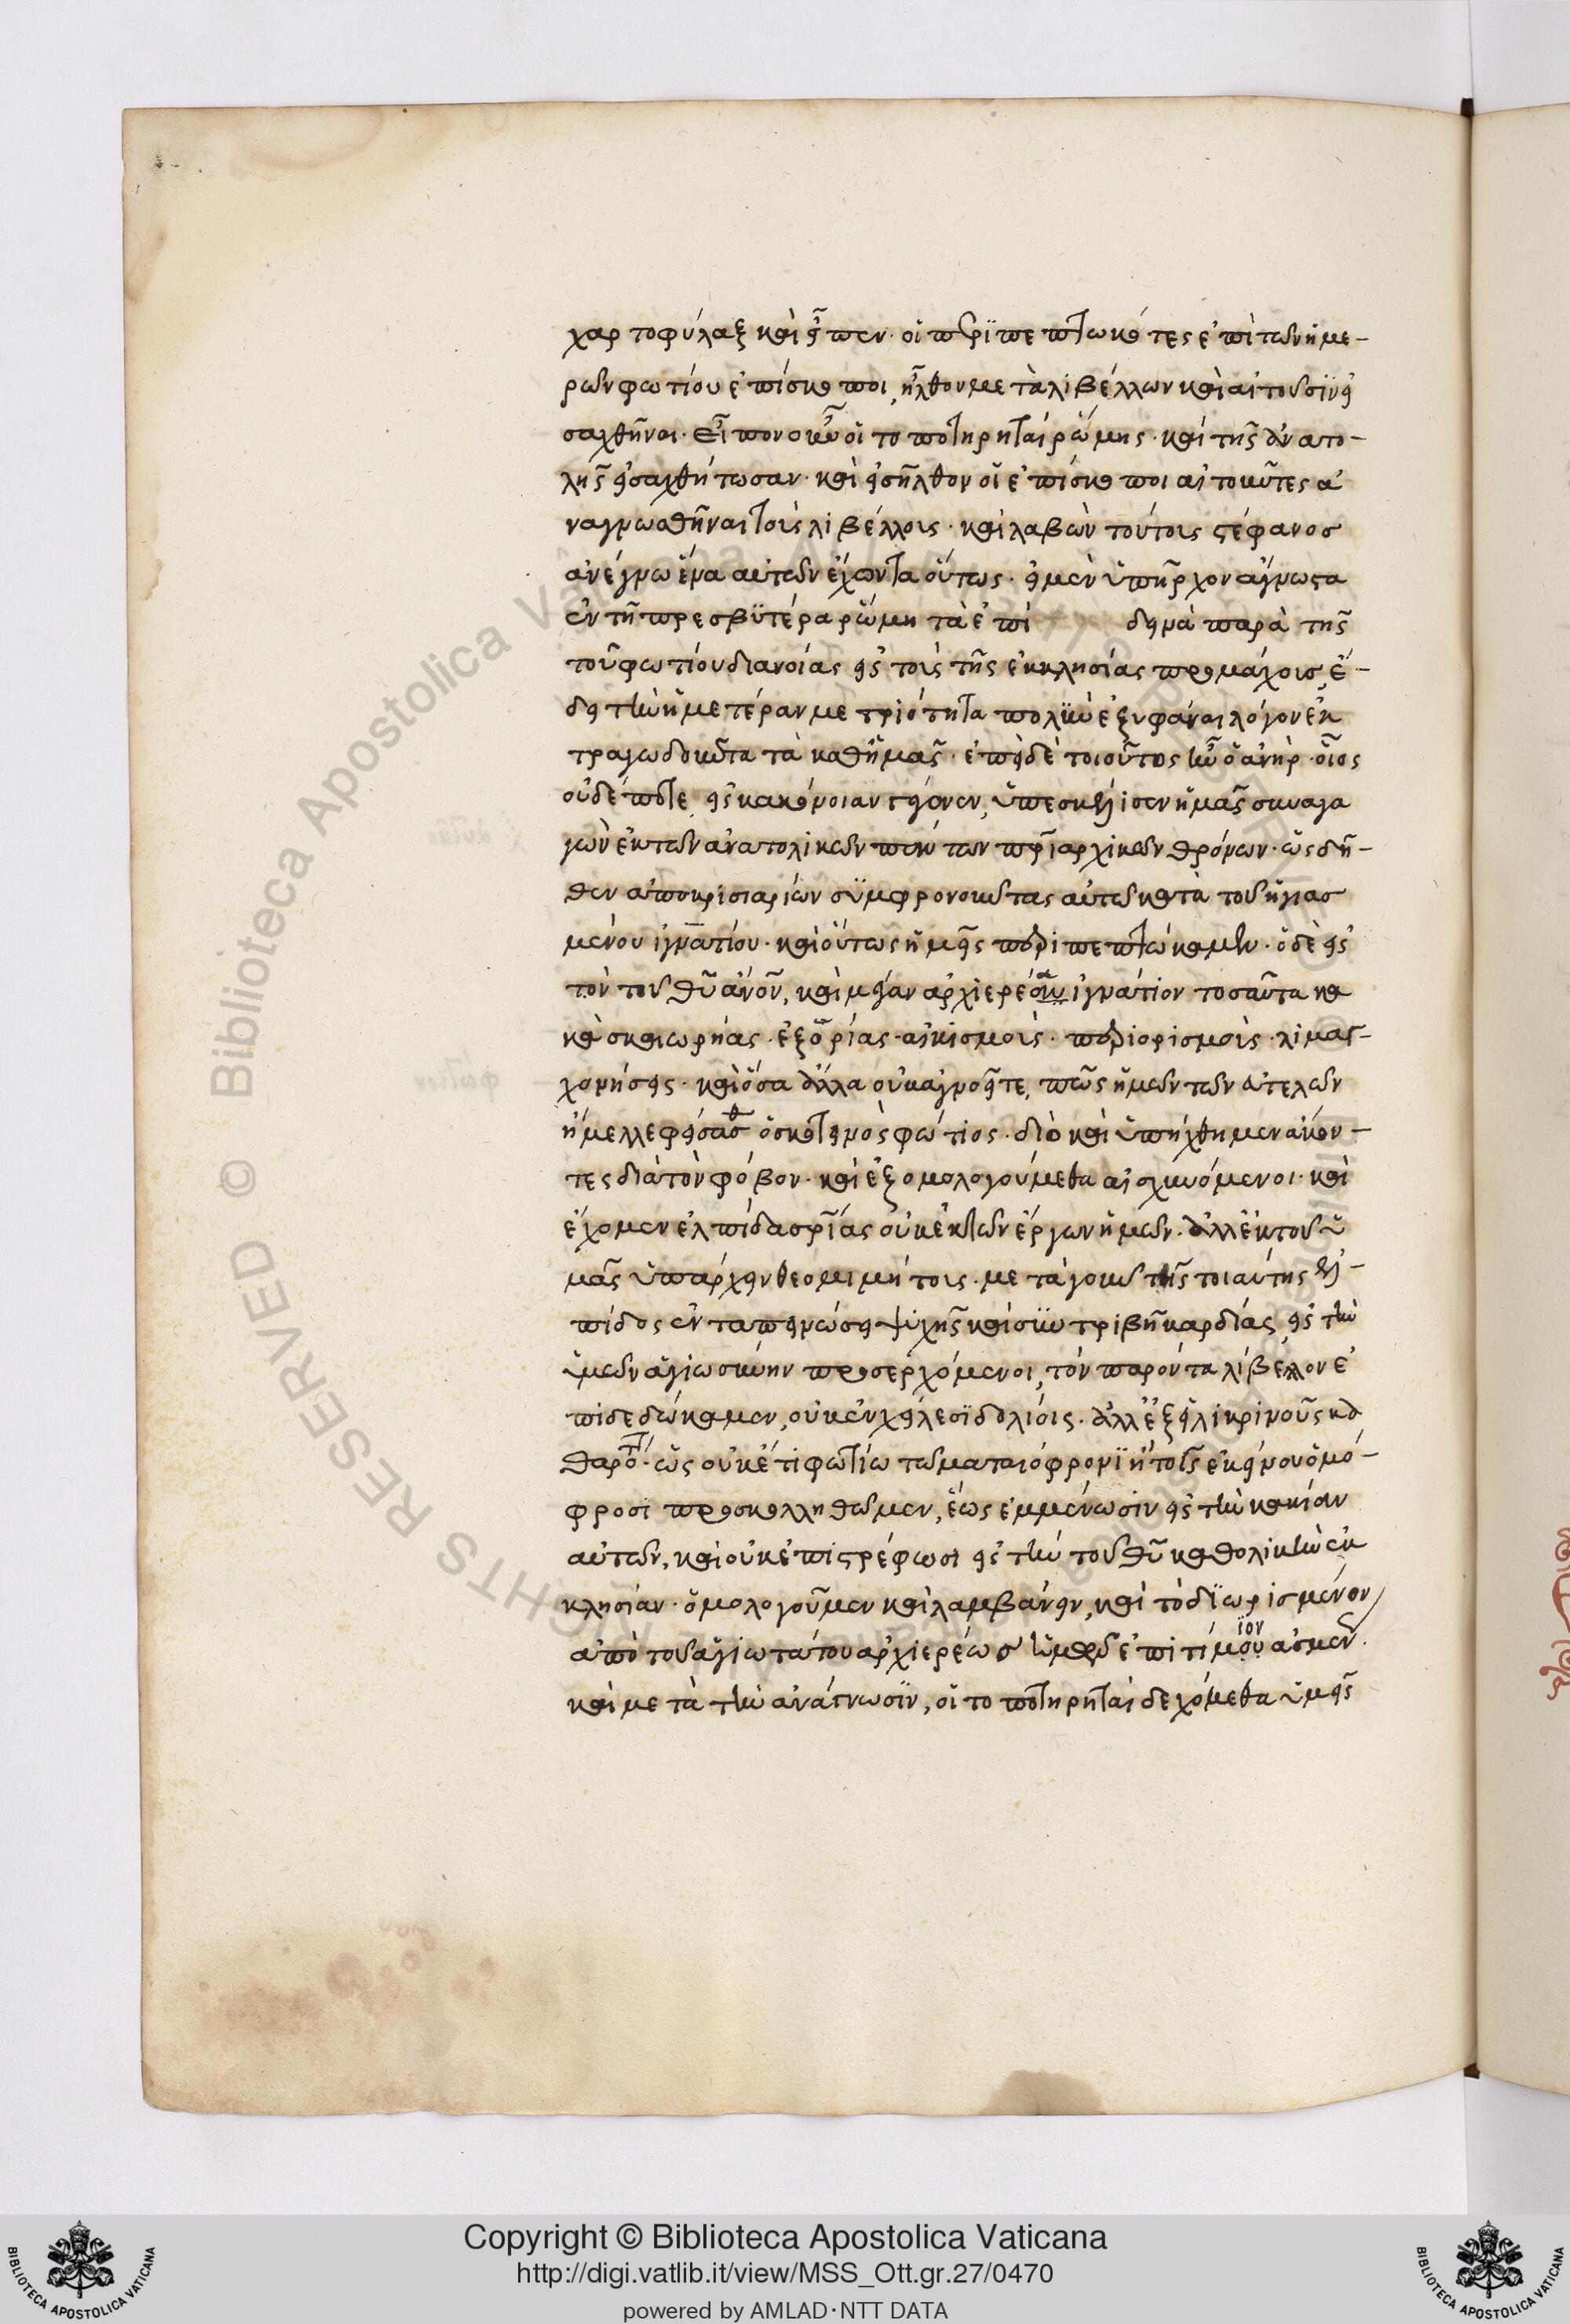 χαρτοφύλαξ καὶ εἶπεν· οἱ περιπεπτωκότες ἐπὶ τῶν ἡμε-
ρῶν φωτίου ἐπίσκοποι, ἦλθον μετὰ λιβέλλων καὶ αἰτοῦσιν εἰ
σαχθῆναι. εἶπον οὖν οἱ τοποτηρηταὶ ῥώμης· καὶ τῆς ἀνατο-
λῆς εἰσαχθήτωσαν· καὶ εἰσῆλθον οἱ ἐπίσκοποι αἰτοῦντες ἀ
ναγνωσθῆναι τοὺς λιβέλλους· καὶ λαβὼν τούτους στέφανος
ἀνέγνω ἕνα αὐτῶν ἔχοντα οὕτως· εἰ μὲν ὑπῆρχον ἄγνωστα
ἐν τῇ πρεσβυτέρα ῥώμη τὰ ἐπὶ δεινὰ παρὰ τῆς
τοῦ φωτίου διανοίας εἰς τοὺς τῆς ἐκκλησίας προμάχους, ἔ-
δει τὴν ἡμετέραν μετριότητα πολὺν ἐξυφάναι λόγον ἐκ
τραγωδοῦντα τὰ καθ' ἡμᾶς· ἐπεὶ δὲ τοιοῦτος ἦν ὁ ἀνὴρ· οἷος
οὐδέποτε εἰς κακόνοιαν γέγονεν, ὑπεσκέλισεν ἡμᾶς συναγα
γὼν ἐκ τῶν ἀνατολικῶν πάντων πριαρχικῶν θρόνων· ὡς δῆ-
θεν ἀποκρισιαρίων συμφρονοῦντας αὐτῶ κατὰ τοῦ ἡγιασ
μένου ἰγνατίου· καὶ οὕτως ἡμεῖς περιπεπτώκαμεν· ὁ δὲ εἰς
τὸν τοῦ θῦ ἄνον, καὶ μέγαν ἀρχιερέα ἰγνάτιον τοσαῦτα κα
κὰ σκαιωρήσας· ἐξορίας· αἰκισμοὺς· περιορισμοὺς· λιμαγ-
χονήσεις· καὶ ὅσα ἄλλα οὐκ ἀγνοεῖτε, πῶς ἡμῶν τῶν ἀτελῶν
ἤμελλε φείσασθ ὁ σκοτεινὸς φώτιος· διὸ καὶ ὑπήχθημεν ἄκον-
τες διὰ τὸν φόβον· καὶ ἐξομολογούμεθα αἰσχυνόμενοι· καὶ
ἔχομεν ἐλπίδα σρίας οὐκ ἐκ τῶν ἔργων ἡμῶν· ἀλλ' ἐκ τοῦ ὑ
μᾶς ὑπάρχειν θεομιμήτους· μετὰ γοῦν τῆς τοιαύτης ἐλ-
πίδος ἐν ταπεινώσει ψυχῆς καὶ συντριβῆ καρδίας, εἰς τὴν
ὑμῶν ἁγιωσύνην προσερχόμενοι, τὸν παρόντα λίβελλον ἐ
πιδεδώκαμεν, οὐκ ἐν χείλεσι δολίοις· ἀλλ' ἐξ εἰλικρινοῦς κα
θαρότ· ὡς οὐκέτι φωτίω τῶ ματαιόφρονι ἢ τοῖς ἐκείνου ὁμό-
φροσι προσκολληθῶμεν, ἕως ἐμμένωσιν εἰς τὴν κακίαν
αὐτῶν, καὶ οὐκ ἐπιστρέφωσι εἰς τὴν τοῦ θῦ καθολικὴν ἐκ
κλησίαν· ὁμολογοῦμεν καὶ λαμβάνειν, καὶ τὸ διωρισμένον
ἀπὸ τοῦ ἁγιωτάτου ἀρχιερέως ἡμῶν ἐπιτίμιον ἄσμεν.
καὶ μετὰ τὴν ἀνάγνωσιν, οἱ τοποτηρηταὶ δεχόμεθα ὑμεῖς
Copyright © Biblioteca Apostolica Vaticana
http://digi.vatlib.it/view/MSS_Ott.gr.27/0470
powered by AMLAD·NTT DATA